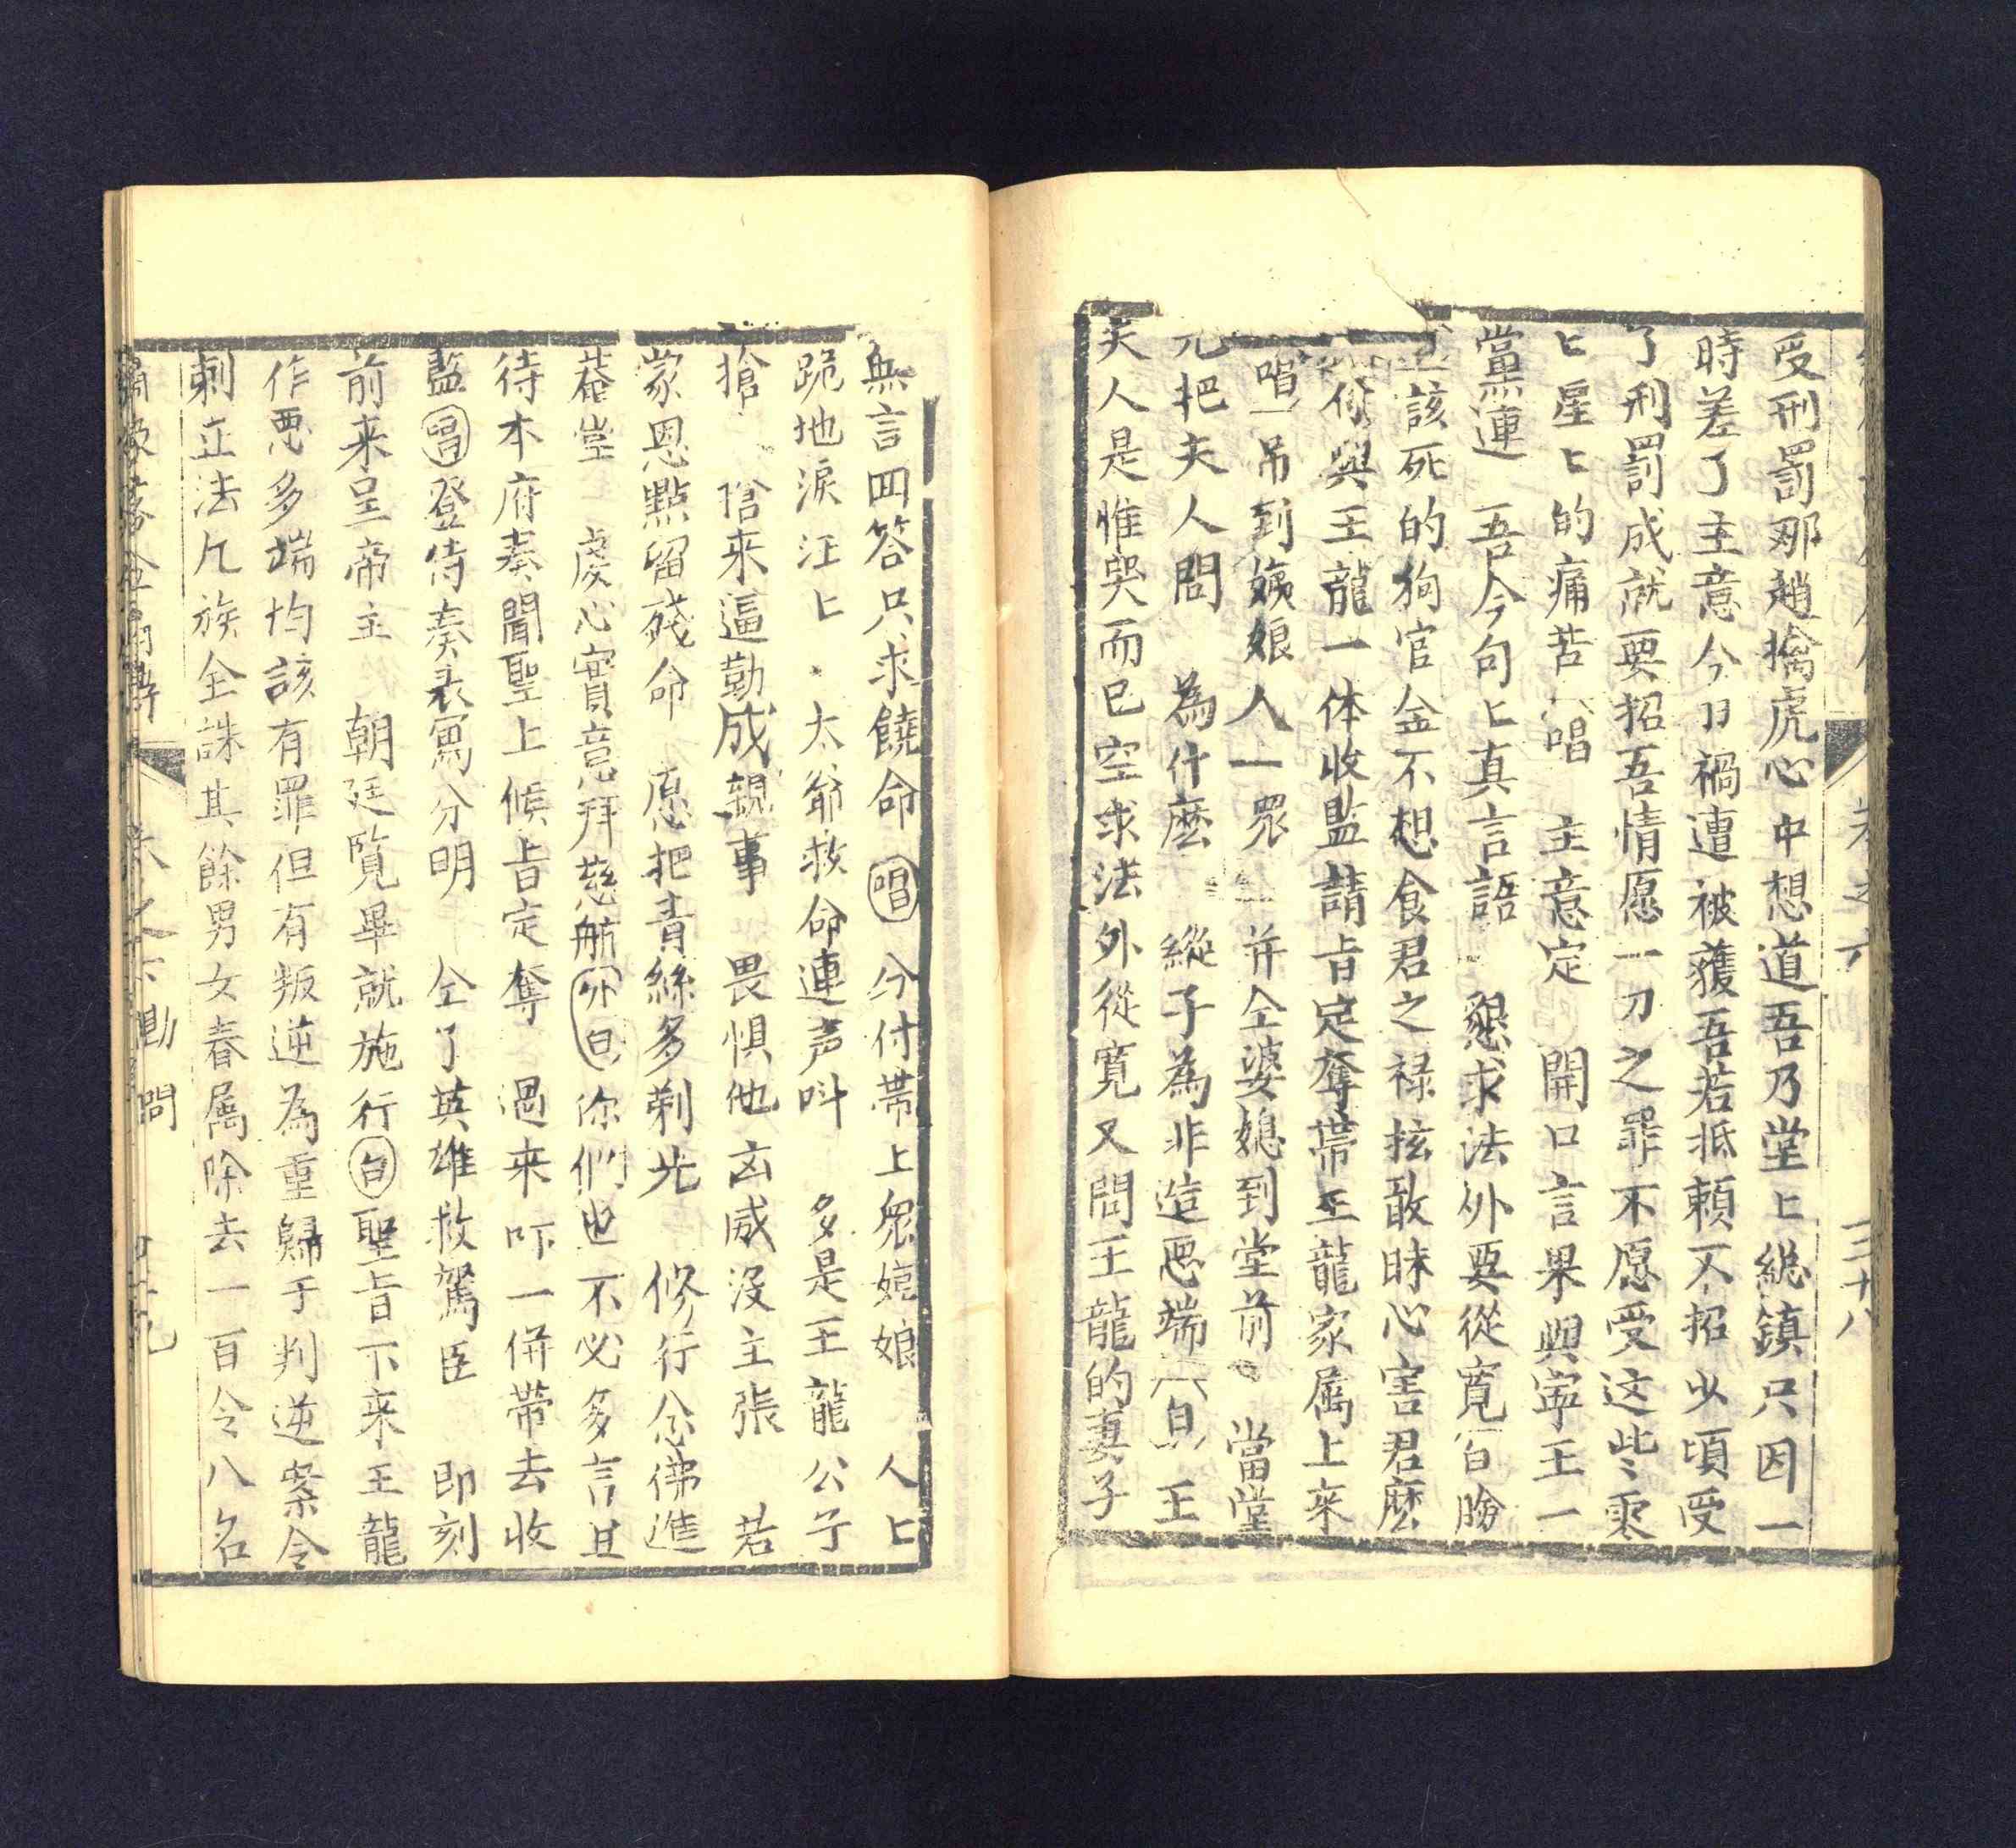 卷之六
三十八
受刑罰那趙擒虎心中想道吾乃堂匕総鎮只因一
時差了主意今日禍遭被獲吾若抵頼不招少頃受
了刑罰成就要招吾情愿一刀之罪不愿受这些零
匕星匕的痛苦 唱 主意定 開口言果與寧王一
黨連 吾今句匕真言語 懇求法外要從寬 白
該死的狗官金不想食君之禄抜敢昧心害君麽
付與王龍一体收監請旨定奪帶王龍家属上来
唱 吊到姨娘人一眾 并仝婆媳到堂前 當堂
先把夫人問 為什麽 縱子為非造悪端 白 王
夫人是惟哭而已空求法外從寛又問王龍的妻子
無言回答只求饒命 唱 分付帯上眾嬌娘 人匕
跪地淚汪匕 太爺救命連声叫 多是王龍公子
搶 搶来逼勤成親事 畏惧他凶威没主張 若
蒙恩點留殘命 愿把青絲多剃光 修行念佛進
菴堂 虔心實意拜慈航 外白 你們也不必多言且
待本府奏聞聖上候旨定奪 過来吓一併帯去收
監 唱 登侍奏表寫分明 仝了英雄救駕臣 即刻
前来呈帝主 朝廷覧畢就施行 白 聖旨下来王龍
作悪多端均該有罪但有叛逆為重歸于判逆案令
剌正法九族全誅其餘男女眷属除去一百令八名
繡像落金扇傳
卷之六 勘問